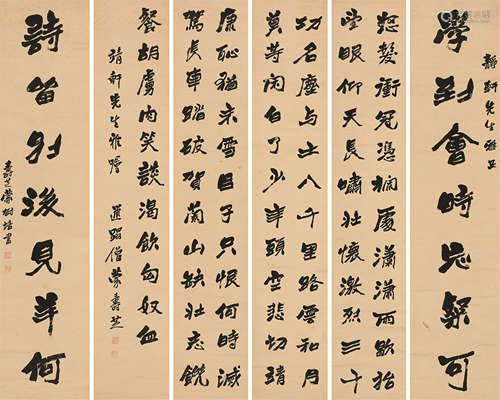 靜軒先生雅正
學到會時忘粲可
怒髮衝冠憑闌處瀟瀟雨歇抬
望眼仰天長嘯壯懷激烈三十
功名塵与土八千里路雲和月
莫等閑白了少年頭空悲切靖
康恥猶未雪臣子只恨何時滅
駕長車踏破賀蘭山缺壯志饑
餐胡虜肉笑談渴飲匈奴血
靖軒先生雅囑 僧蒙壽芝
詩留別後見羊何
壽芝蒙樹培書